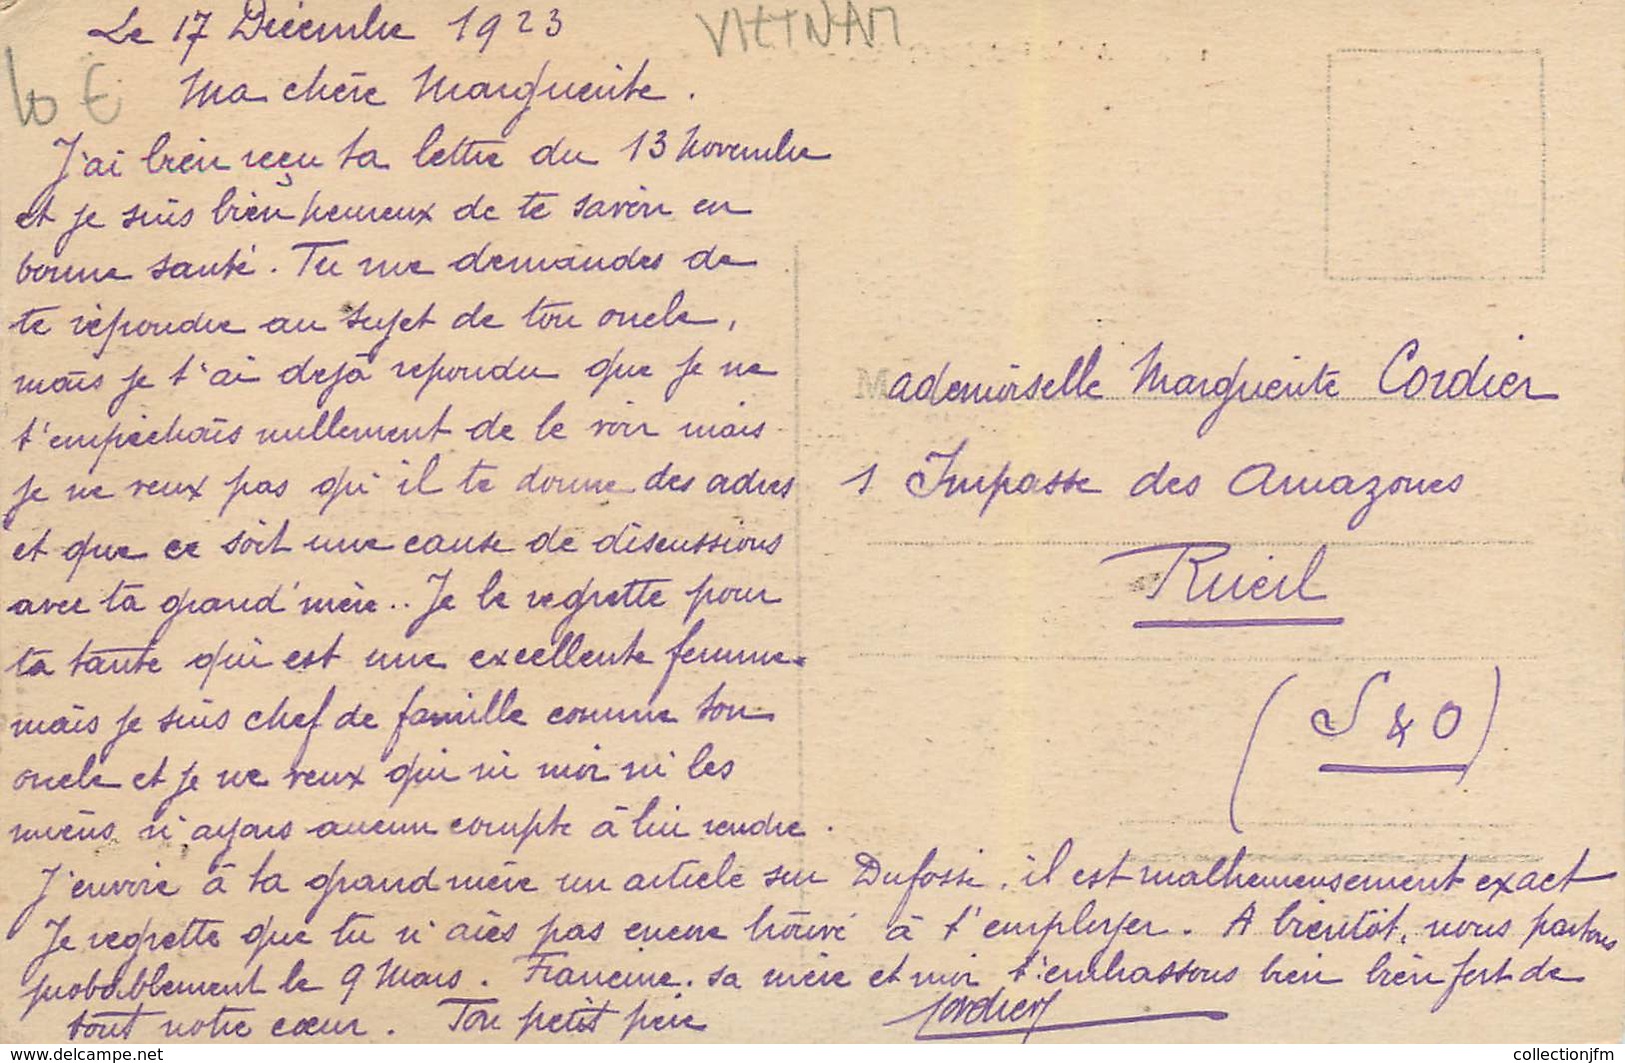 Le 17 Décembre 1923
VIETNAM
10 €
Ma chère Marguerite.
J'ai bien reçu ta lettre du 13 Novembre
et je suis bien heureux de te savoir en
bonne santé. Tu me demandes de
te répondre au sujet de ton oncle,
mais je t'ai dejà repondu que je ne
t'empêchais nullement de le voir mais
je ne veux pas qu'il te donne des
et que ce soit une cause de discussions
avec ta grand'mère.. Je le regrette pour
ta tante qui est une excellente femme.
mais je suis chef de famille comme ton
oncle et je ne veux qui ni moi ni les
miens n'ayons aucun compte à lui rendre.
Mademoiselle Marguerite Cordier
1 Impasse des Amazones
Rueil
(S & O)
J'envoie à ta grand mère un article sur Dufossé. il est malheureusement exact
Je regrette que tu n'aies pas encore trouvé à t'employer. A bientôt, nous partons
probablement le 9 Mars. Francine, sa mère et moi t'embrassons bien bien fort de
tout notre cœur. Ton petit père
Cordier
www.delcampe.net
collectionjfm